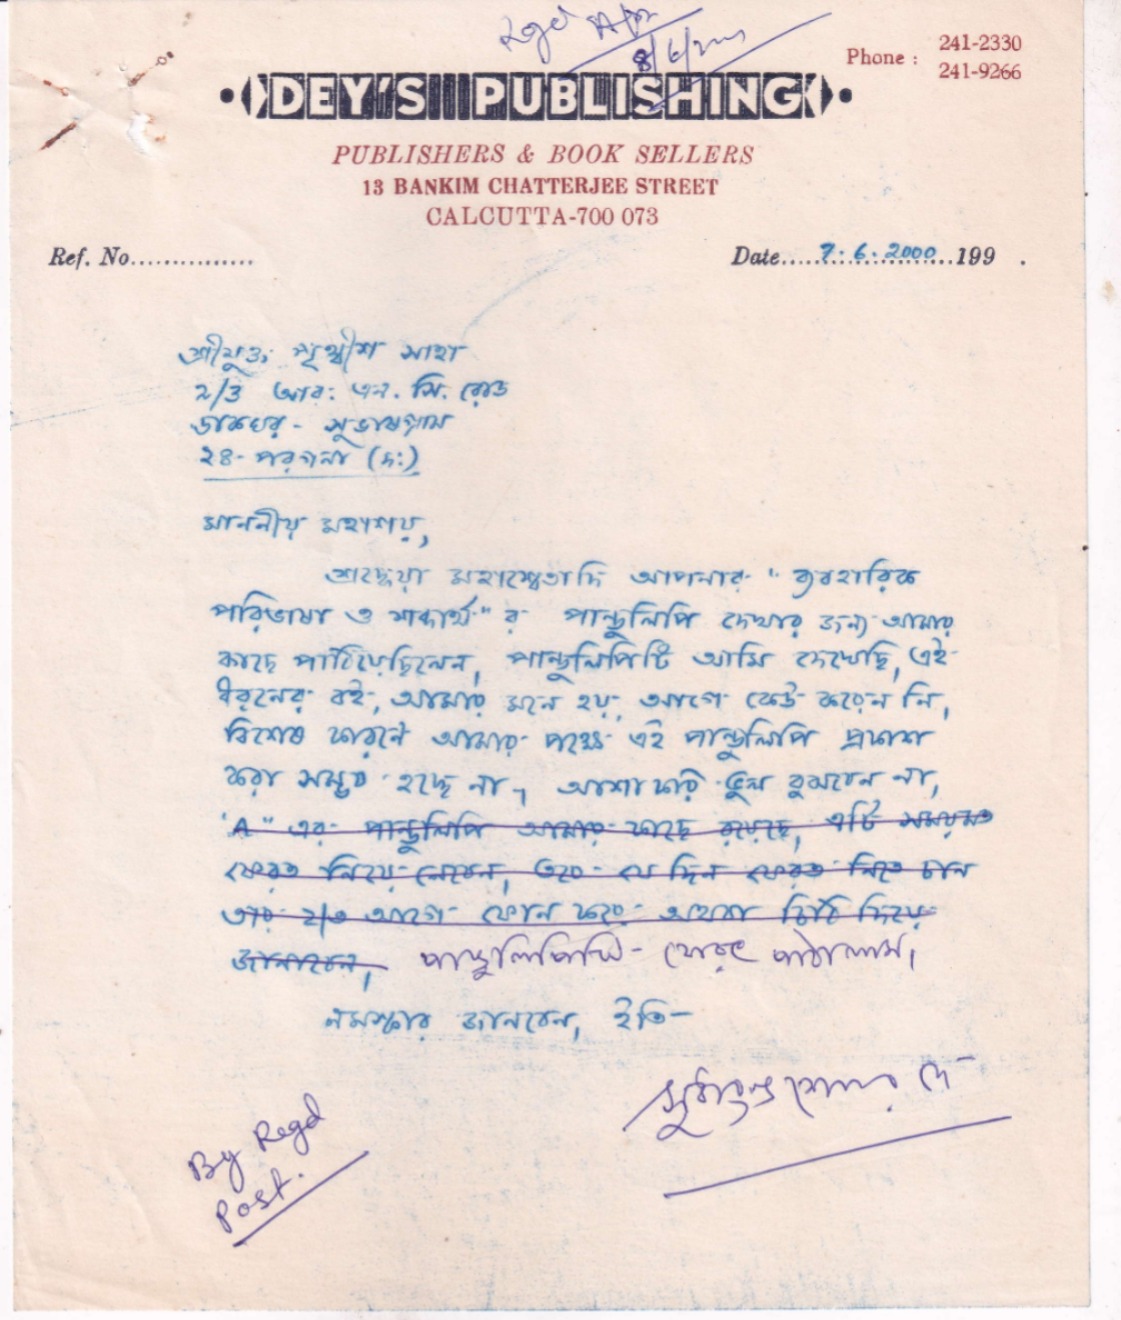 Regd A/D
8/6/2000
Phone : 241-2330
241-9266
DEY'S PUBLISHING
PUBLISHERS & BOOK SELLERS
13 BANKIM CHATTERJEE STREET
CALCUTTA-700 073
Ref. No...............
Date.....7.6.2000...199 .
শ্রীযুক্ত পৃথ্বীশ সাহা
২/৩ আর: এন. সি. রোড
ডাকঘর - সুভাষগ্রাম
২৪- পরগনা (দ:)
মাননীয় মহাশয়,
শ্রদ্ধেয়া মহাশ্বেতাদি আপনার "ব্যবহারিক
পরিভাষা ও শব্দার্থ" র পান্ডুলিপি দেখার জন্য আমার
কাছে পাঠিয়েছিলেন, পান্ডুলিপিটি আমি দেখেছি, এই
ধরনের বই, আমার মনে হয়, আগে কেউ করেন নি,
বিশেষ কারনে আমার পক্ষে এই পান্ডুলিপি প্রকাশ
করা সম্ভব হচ্ছে না, আশা করি ভুল বুঝবেন না,
"A" এর পান্ডুলিপি আমার কাছে রয়েছে, এটি সময়মত
ফেরত নিয়ে নেবেন, তবে যে দিন ফেরত নিতে চান
তার ২/৩ আগে ফোন করে অথবা চিঠি দিয়ে
জানাবেন, পান্ডুলিপিটি - ফেরৎ পাঠালাম।
নমস্কার জানবেন, ইতি-
সুধাংশুশেখর দে
By Regd
Post.